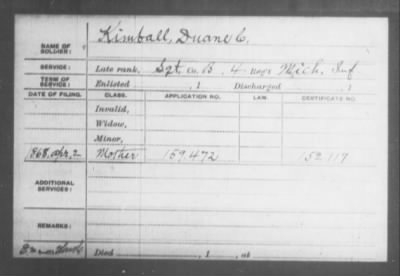 Kimball, Duane C.
NAME OF SOLDIER:
SERVICE: Late rank, Sgt, Co. B, 4 Reg't Mich. Inf
TERM OF SERVICE: Enlisted , 1 Discharged , 1
DATE OF FILING. CLASS. APPLICATION NO. LAW. CERTIFICATE NO.
Invalid,
Widow,
Minor,
1868, Apr. 2 Mother 159.472 152.117
ADDITIONAL SERVICES:
REMARKS:
Died , 1 , at